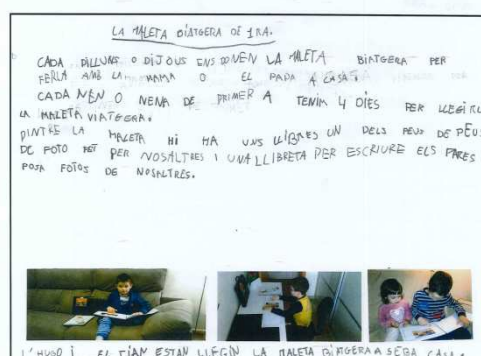 LA MALETA BIATGERA DE 1RA.
CADA DILLUNS O DIJOUS ENS DONEN LA MALETA BIATGERA PER
FERLA AMB LA MAMA O EL PAPA A CASA.
CADA NEN O NENA DE PRIMER A TENIM 4 DIES PER LLEGIR
LA MALETA VIATGERA.
DINTRE LA MALETA HI HA UNS LLIBRES UN DELS PEUS DE PEUS
DE FOTO FET PER NOSALTRES I UNA LLIBRETA PER ESCRIURE ELS PARES I
POSA FOTOS DE NOSALTRES.
L'HUGO I EL TIAN ESTAN LLEGIN LA MALETA BIATGERA A SEBA CASA.